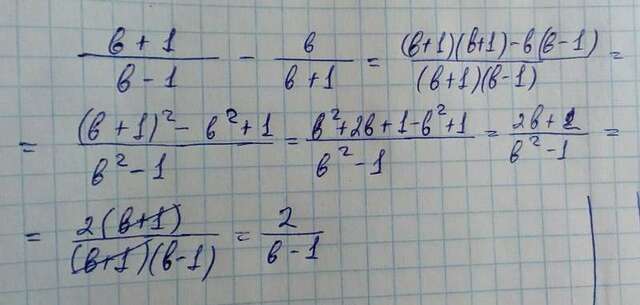 (в + 1)/(в - 1) - в/(в + 1) = ((в+1)(в+1) - в(в-1))/((в+1)(в-1)) =
= ((в + 1)² - в² + 1)/(в² - 1) = (в² + 2в + 1 - в² + 1)/(в² - 1) = (2в + 2)/(в² - 1) =
= (2(в+1))/((в+1)(в-1)) = 2/(в - 1)